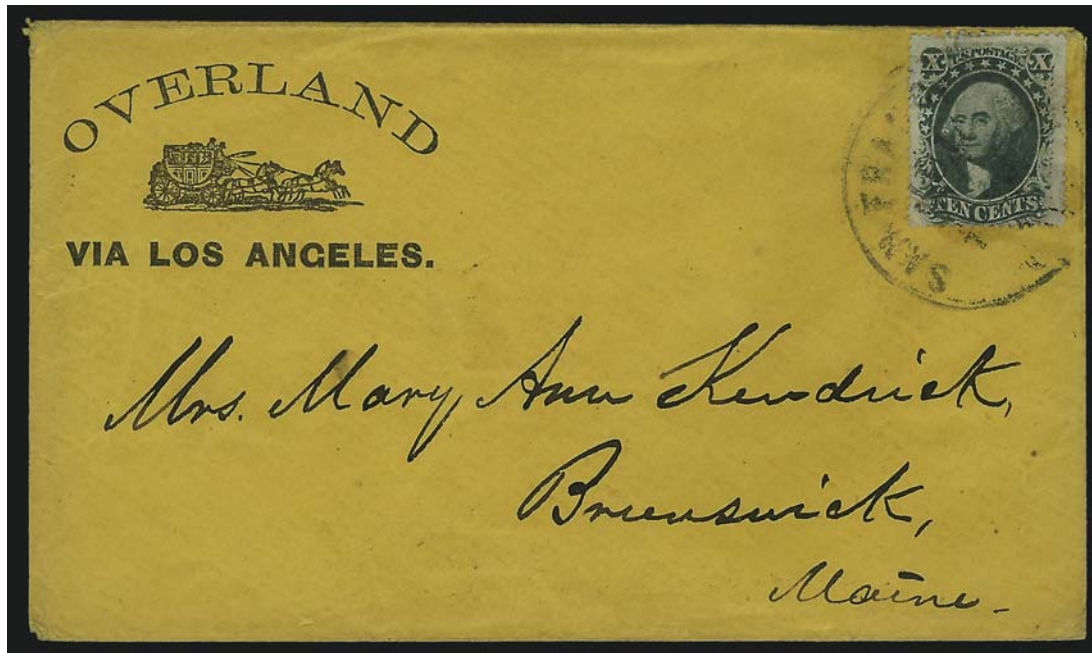 OVERLAND
VIA LOS ANGELES.
X U.S. POSTAGE X
TEN CENTS
SAN FRA
Mrs. Mary Ann Kendrick,
Brunswick,
Maine.